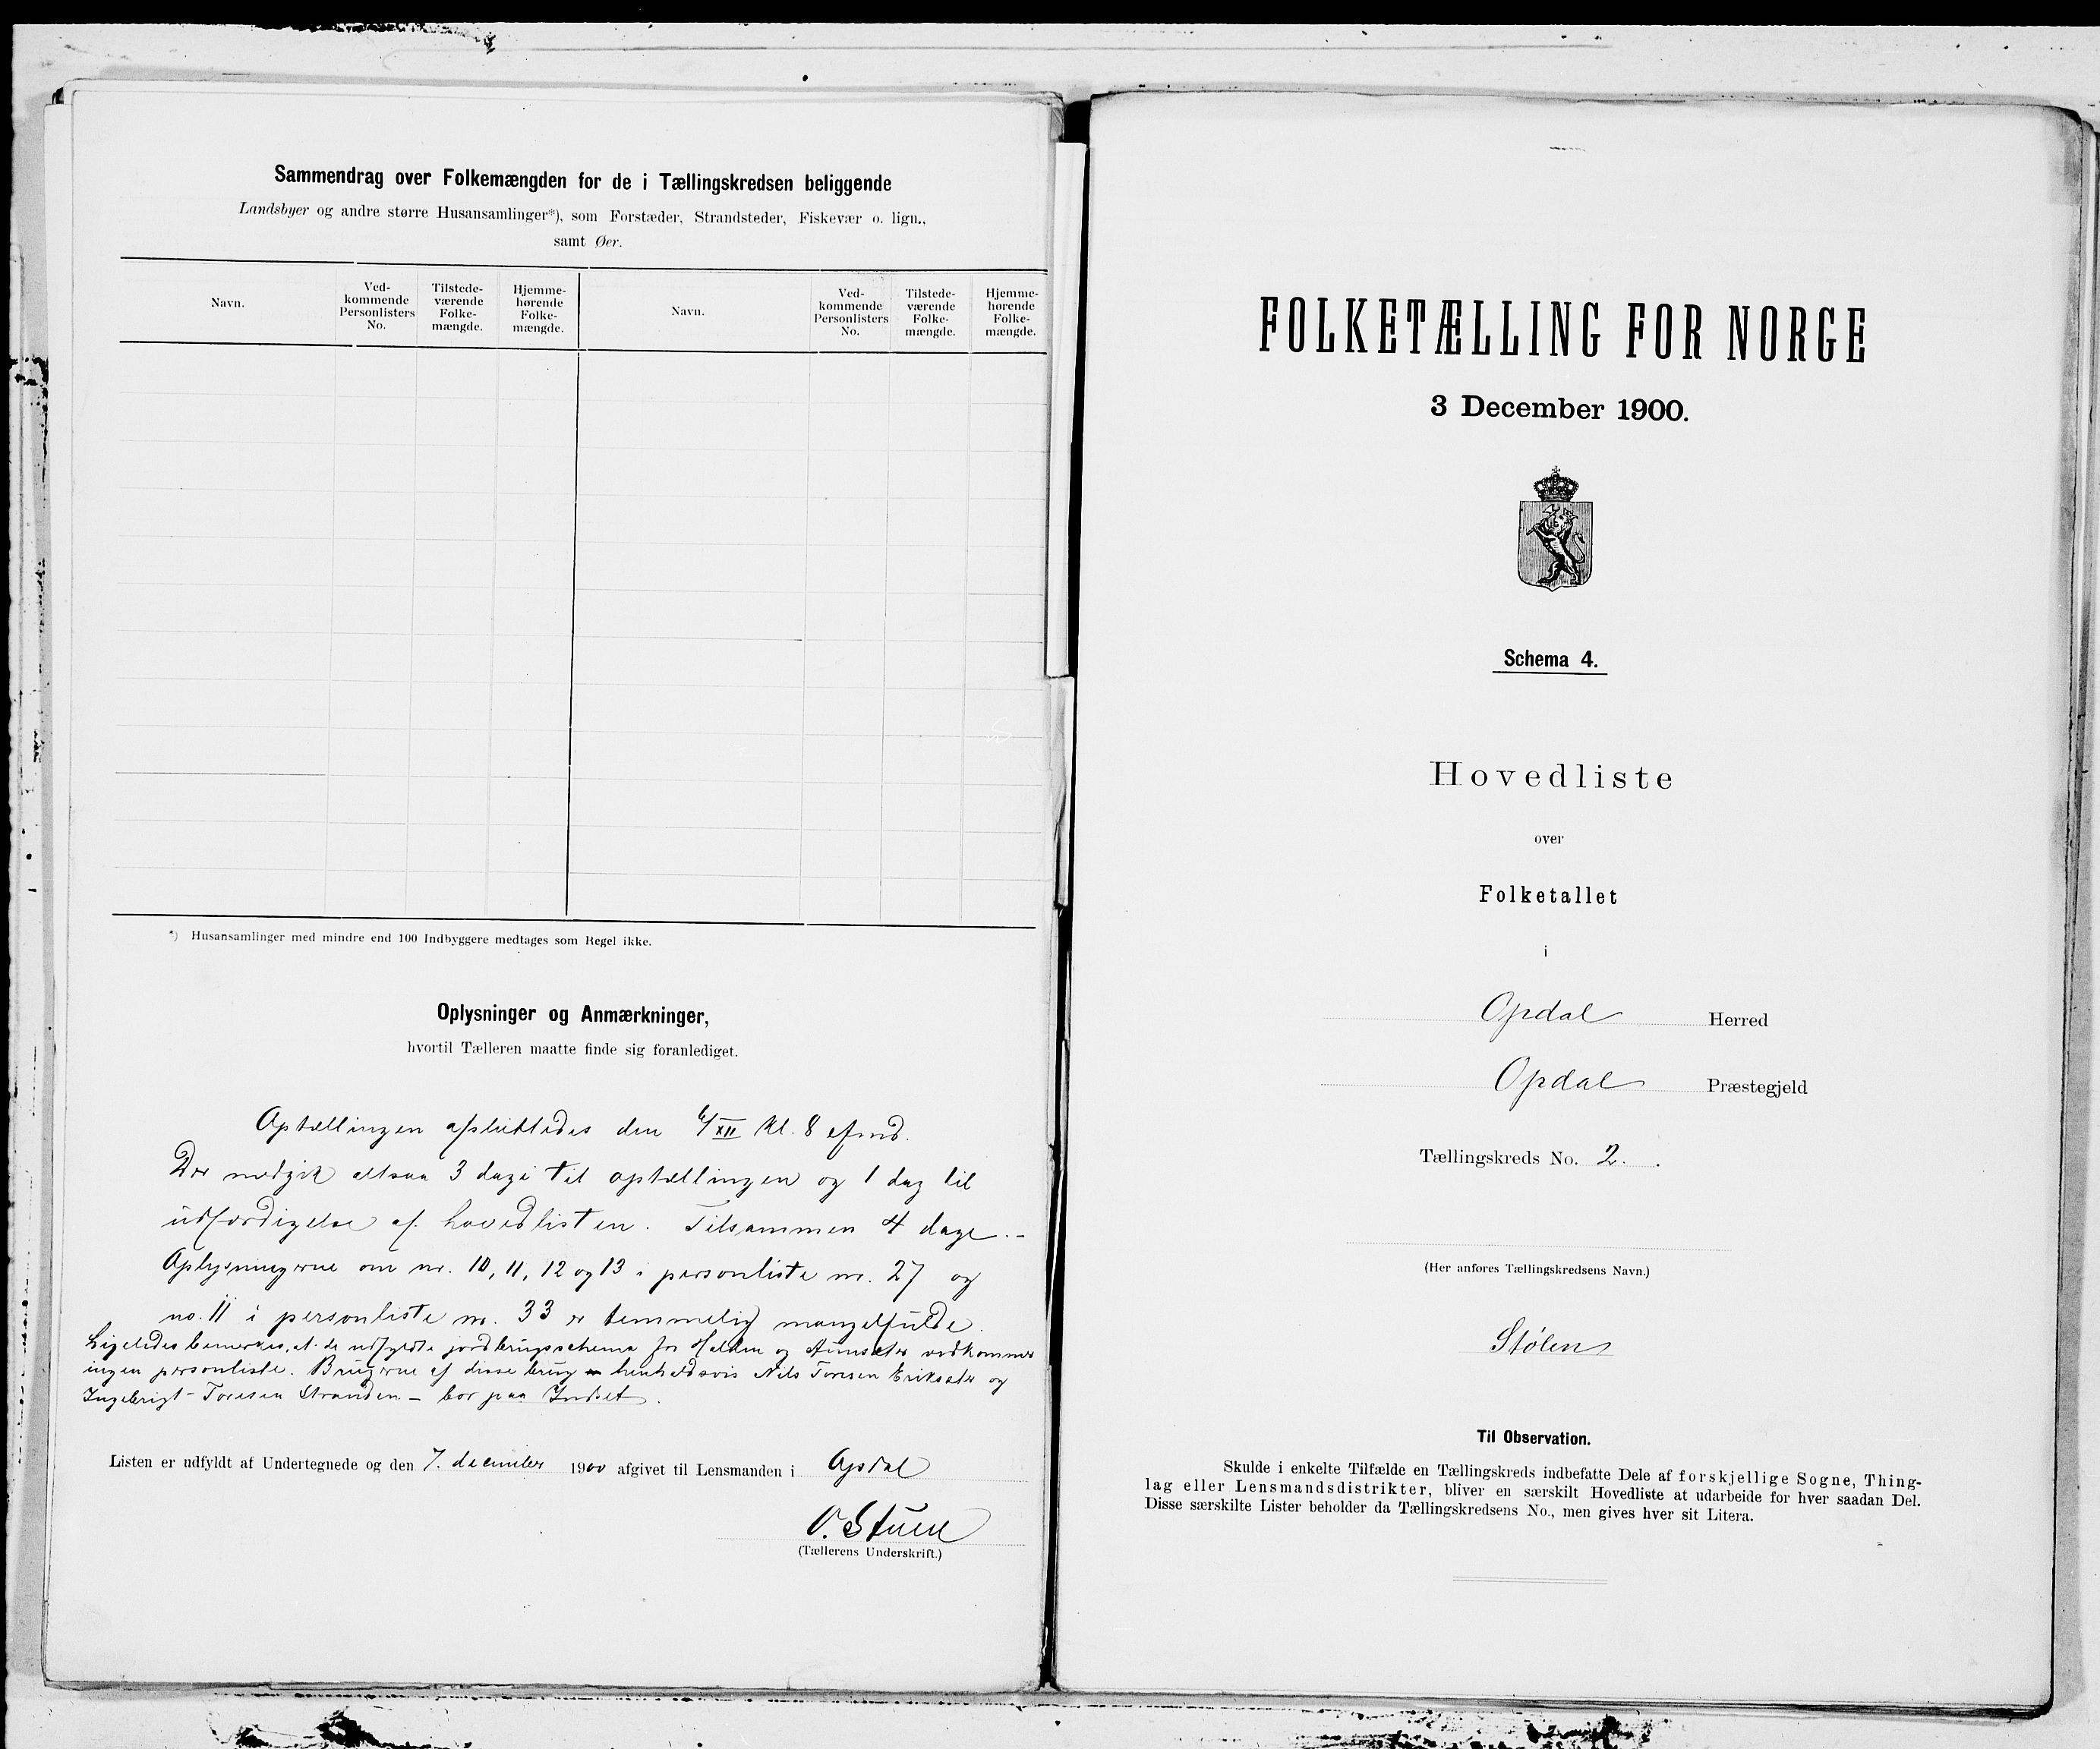 Sammendrag over Folkemængden for de i Tællingskredsen beliggende
Landsbyer og andre større Husansamlinger*), som Forstæder, Strandsteder, Fiskevær o. lign.,
samt Øer.
Navn.
Ved-
kommende
Personlisters
No.
Tilstede-
værende
Folke-
mængde.
Hjemme-
hørende
Folke-
mængde.
Navn.
Ved-
kommende
Personlisters
No.
Tilstede-
værende
Folke-
mængde.
Hjemme-
hørende
Folke-
mængde.
*) Husansamlinger med mindre end 100 Indbyggere medtages som Regel ikke.
Oplysninger og Anmærkninger,
hvortil Tælleren maatte finde sig foranlediget.
Optællingen afsluttedes den 6/XII kl. 8 efmd.
Der medgik altsaa 3 dage til optællingen og 1 dag til
udfærdigelse af hovedlisten. Tilsammen 4 dage.-
Oplysningerne om nr. 10, 11, 12 og 13 i personliste nr. 27 og
no. 11 i personliste nr. 33 er temmelig mangelfulde.
Ligeledes bemerkes, at de udfyldte jordbrugsschema for og vedkommer
ingen personliste. Brugerne af disse brug henholdsvis Nils Toresen og
Ingebrigt Toresen Stranden - bor paa Indset.
Listen er udfyldt af Undertegnede og den 7. december 1900 afgivet til Lensmanden i Opdal
O. Stuen
(Tællerens Underskrift.)
FOLKETÆLLING FOR NORGE
3 December 1900.
Schema 4.
Hovedliste
over
Folketallet
i
Opdal Herred
Opdal Præstegjeld
Tællingskreds No. 2.
(Her anføres Tællingskredsens Navn.)
Stølen
Til Observation.
Skulde i enkelte Tilfælde en Tællingskreds indbefatte Dele af forskjellige Sogne, Thing-
lag eller Lensmandsdistrikter, bliver en særskilt Hovedliste at udarbeide for hver saadan Del.
Disse særskilte Lister beholder da Tællingskredsens No., men gives hver sit Litera.